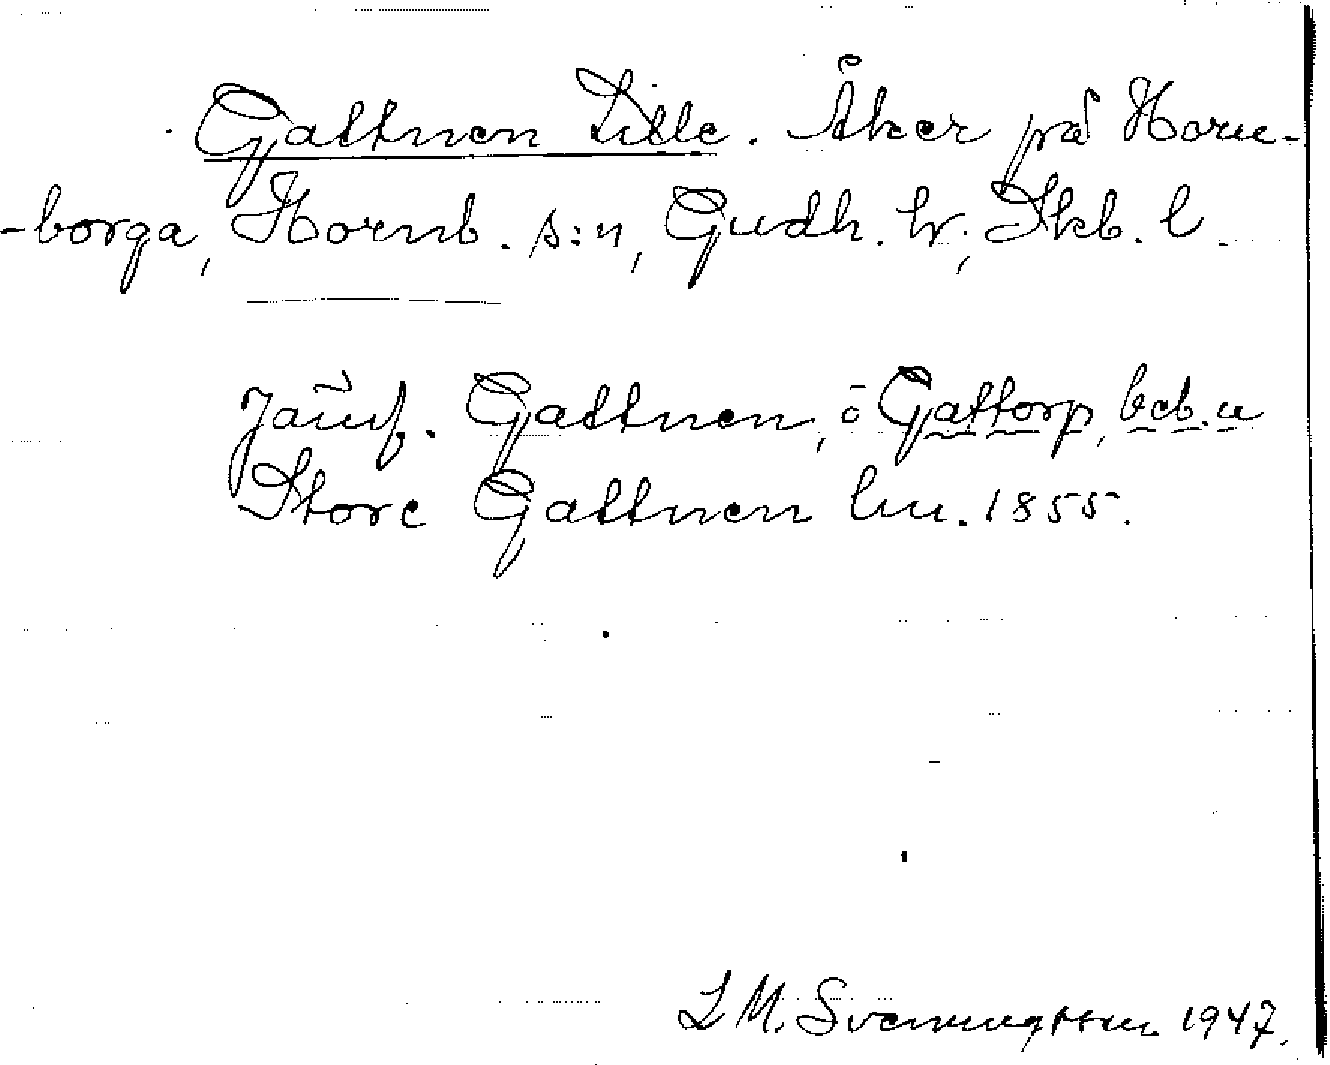 Gattnen Lille. Åker på Horn-
-borga, Hornb. s:n, Gudh. hr, Skb. l.
Jämf. Gattnen, ö Gattorp, beb. o
Store Gattnen lm. 1855.
L M. Svenungsson 1947.